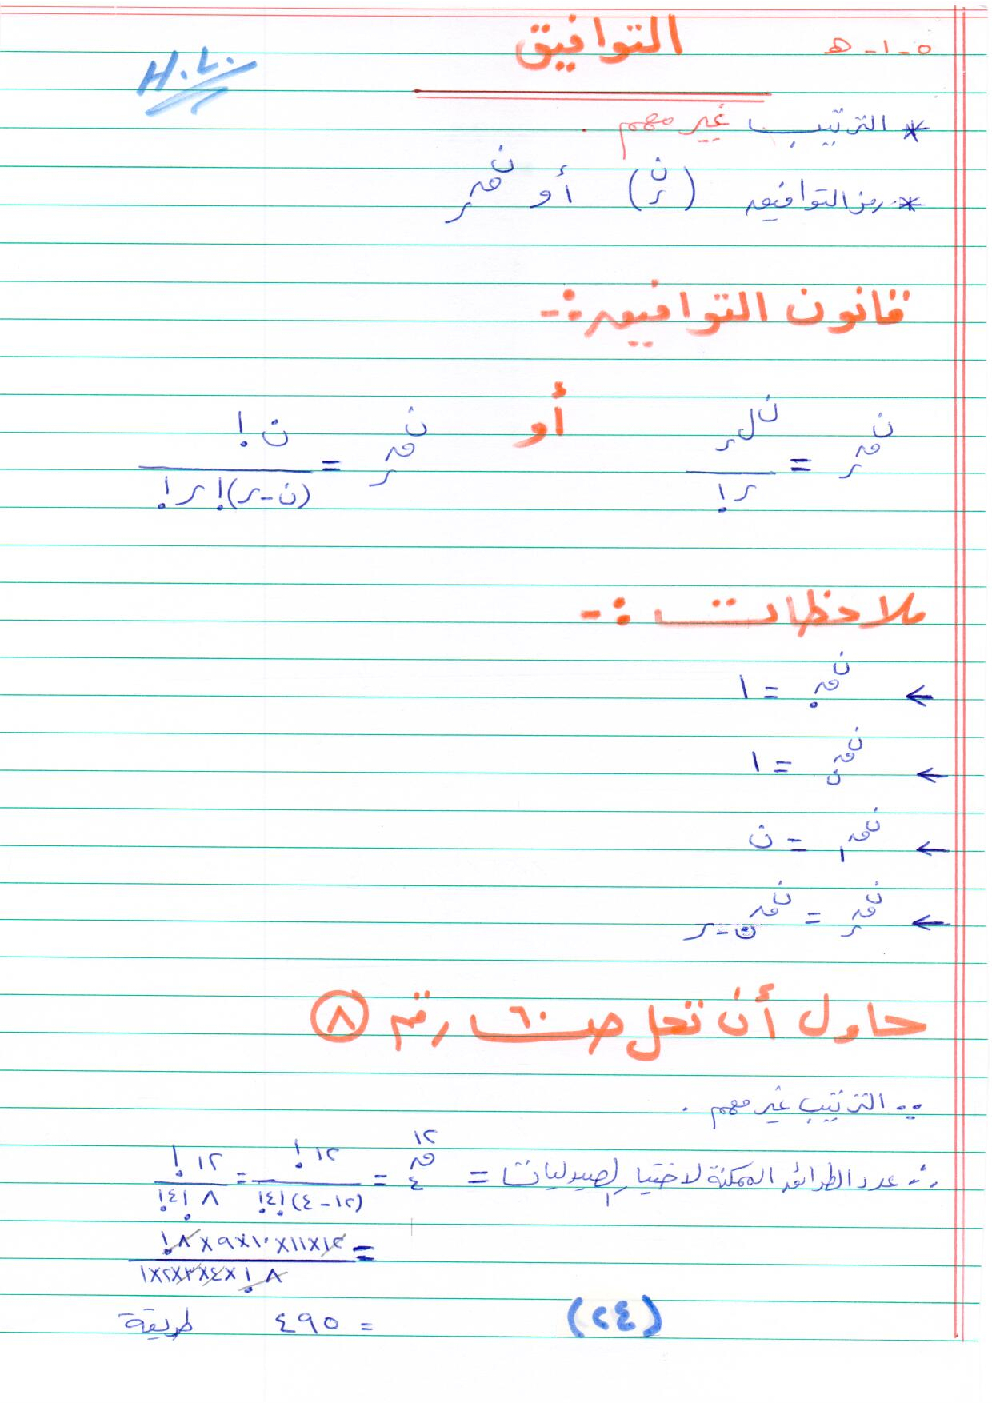 ٥-١-هـ
التوافيق
H.L.
* الترتيب غير مهم .
* رمز التوافيق (ن ر) أو ن ق ر
قانون التوافيق :-
ن ق ر = ن ل ر / ر! أو ن ق ر = ن! / (ن-ر)! ر!
ملاحظات :-
← ن ق ٠ = ١
← ن ق ن = ١
← ن ق ١ = ن
← ن ق ر = ن ق ن-ر
حاول أن تحل صـ ٦٠ رقم (٨)
∵ الترتيب غير مهم .
∴ عدد الطرائق الممكنة لاختيار الصيدليات = ١٢ ق ٤ = ١٢! / (١٢-٤)! ٤! = ١٢! / ٨! ٤!
= ١٢×١١×١٠×٩×٨! / ٨!×٤×٣×٢×١
= ٤٩٥ طريقة
(٢٤)